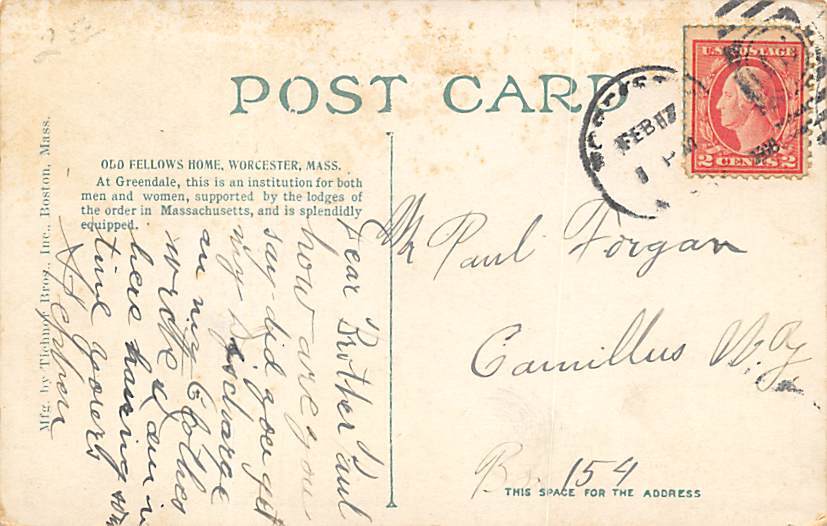 POST CARD
ODD FELLOWS HOME, WORCESTER, MASS.
At Greendale, this is an institution for both
men and women, supported by the lodges of
the order in Massachusetts, and is splendidly
equipped.
Mfg. by Tichnor Bros., Inc., Boston, Mass.
Dear Brother Paul
how are you
say did you get
my Discharge
an my Clothes
wrote I am in
here having
time yours
Stephen
FEB 17
1 PM
U.S. POSTAGE
2 CENTS 2
Mr Paul Forgan
Camillus N.Y
Bx. 154
THIS SPACE FOR THE ADDRESS